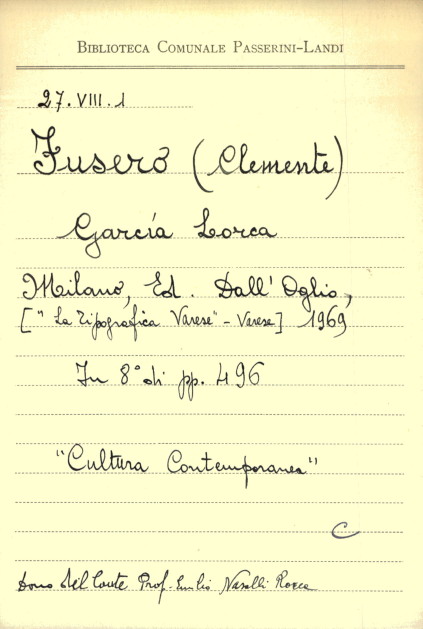 BIBLIOTECA COMUNALE PASSERINI-LANDI
27.VIII.1
Fusero (Clemente)
García Lorca
Milano, Ed. Dall'Oglio,
["La Tipografica Varese" - Varese] 1969
In 8° di pp. 496
"Cultura Contemporanea"
C
Dono del Conte Prof. Emilio Nasalli Rocca